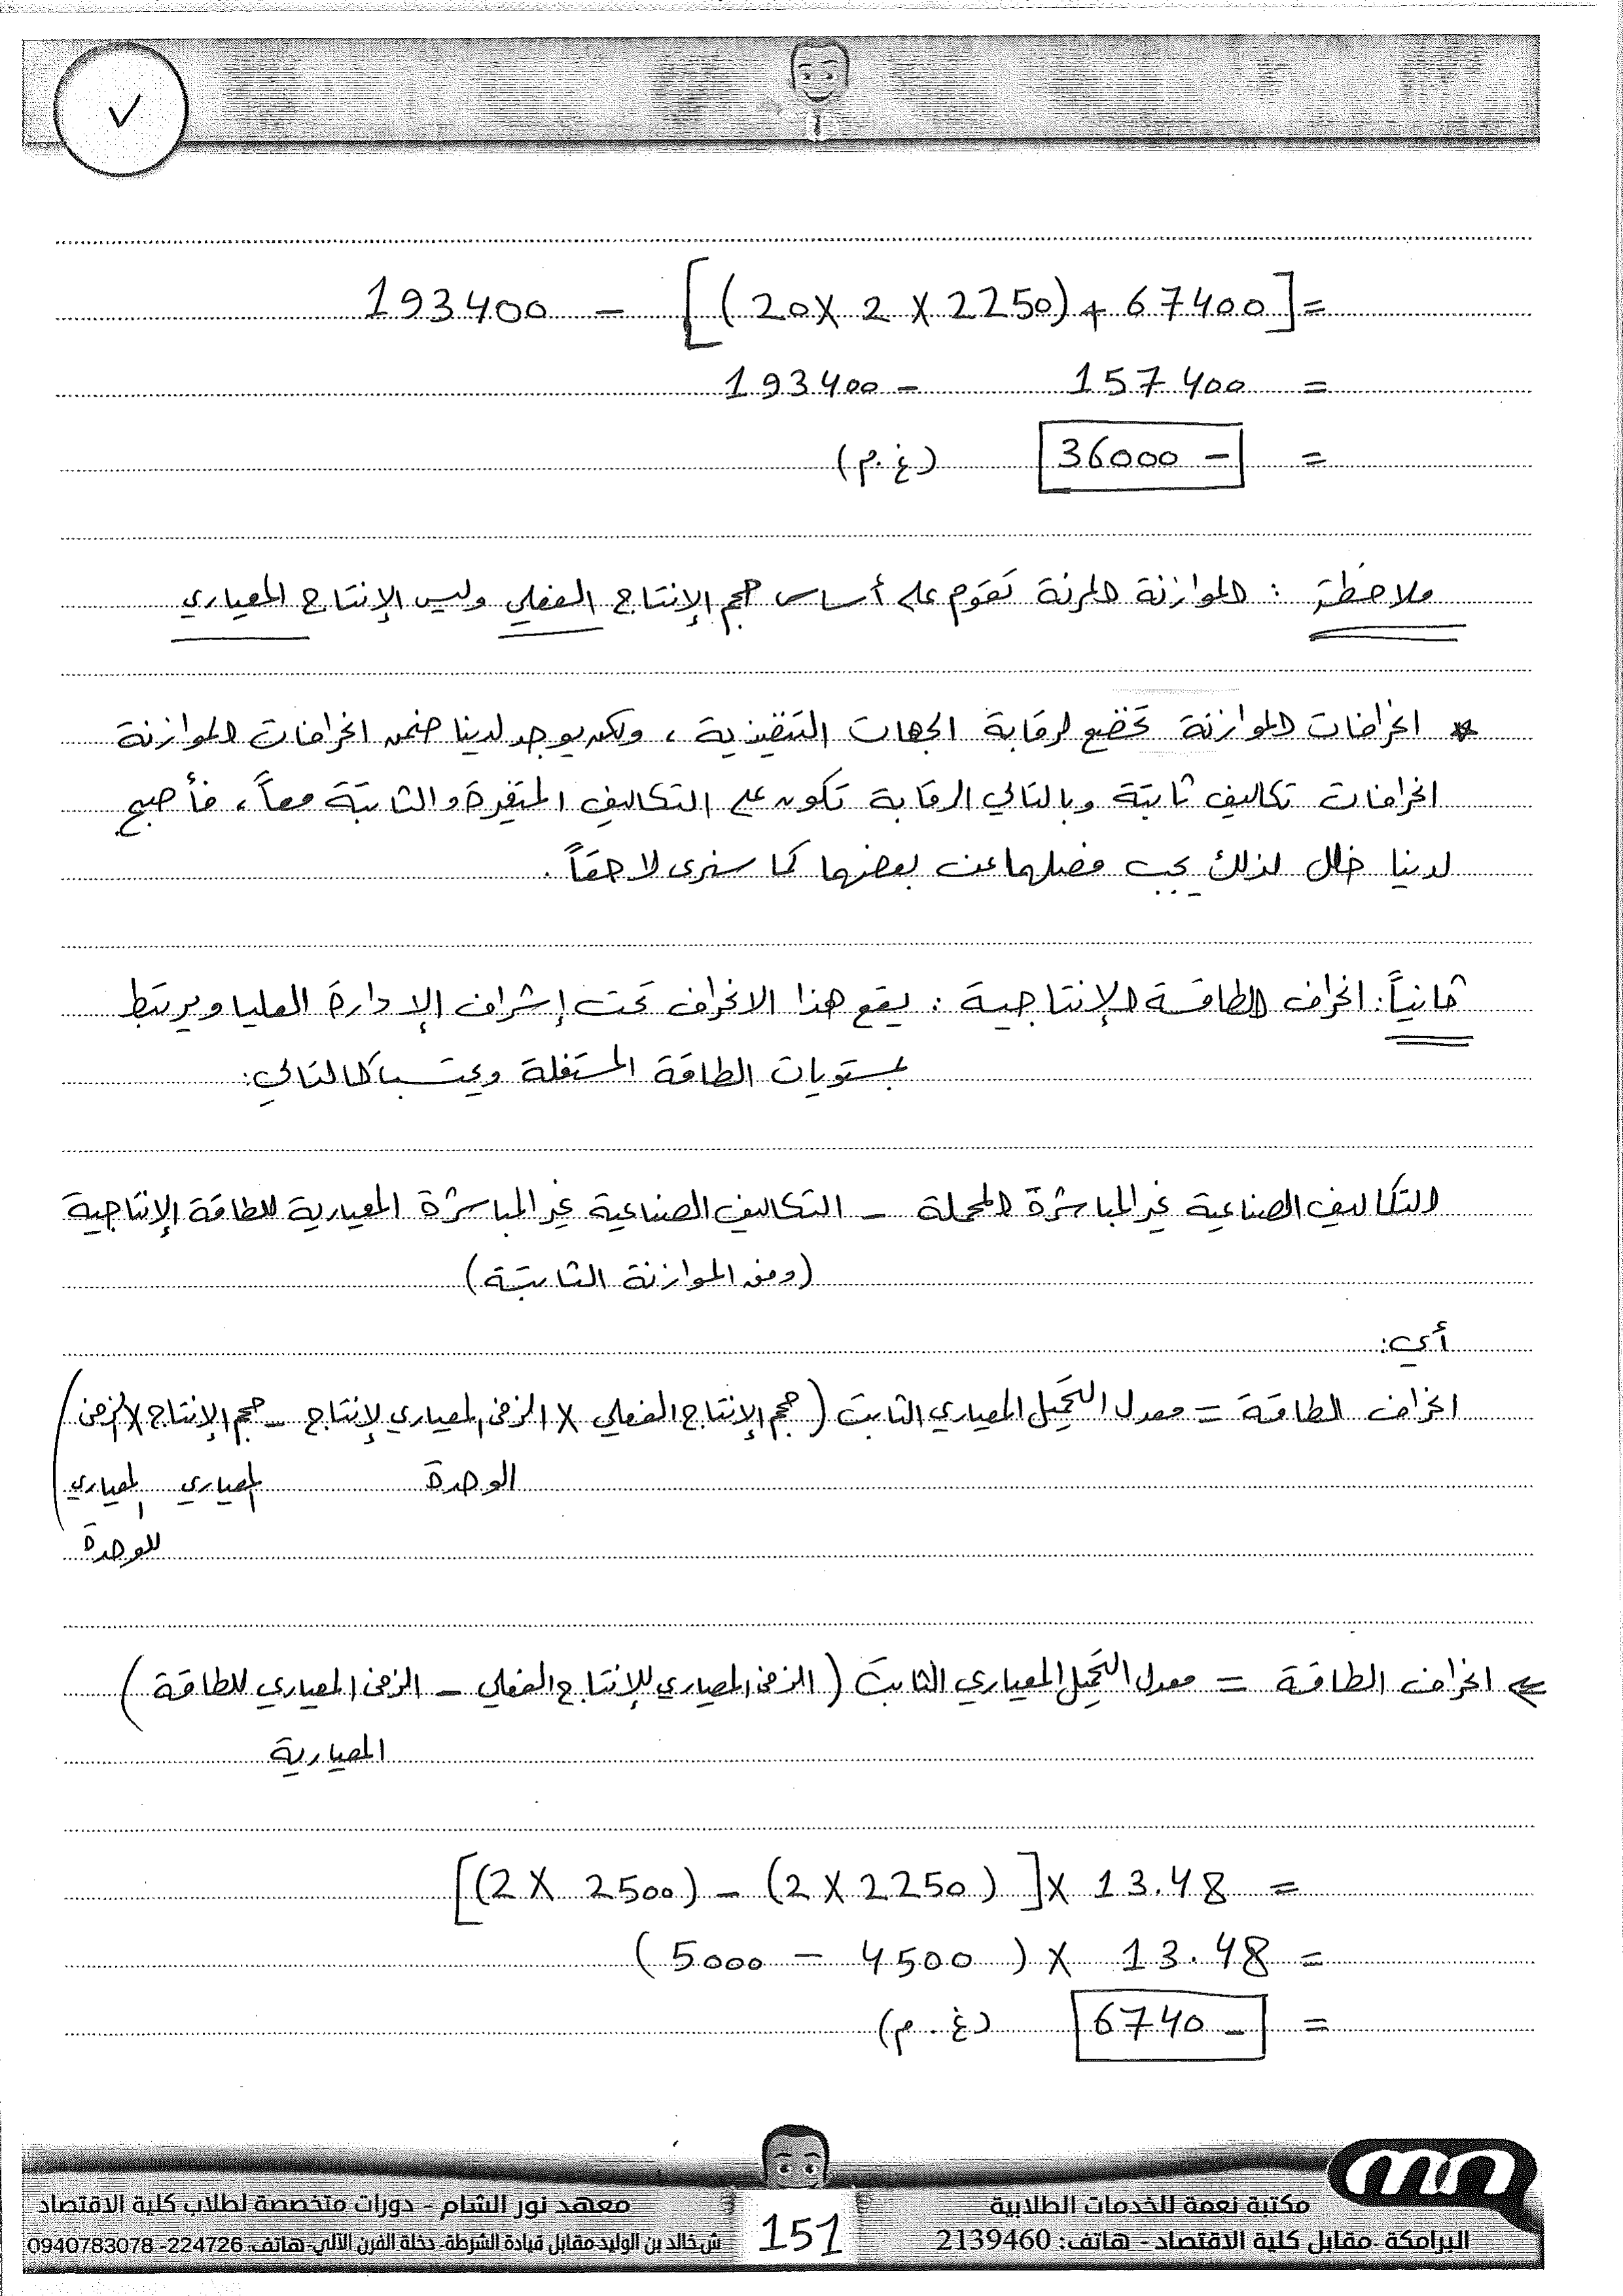 = [(20 X 2 X 2250) + 67400] - 193400
= 157400 - 193400
= - 36000 (غ.م)
ملاحظة : الموازنة المرنة تقوم على أساس حجم الإنتاج الفعلي وليس الإنتاج المعياري
* انحرافات الموازنة تخضع لرقابة الجهات التنفيذية ، ولكن يوجد لدينا ضمن انحرافات الموازنة
انحرافات تكاليف ثابتة وبالتالي الرقابة تكون على التكاليف المتغيرة والثابتة معاً ، فأصبح
لدينا خلل لذلك يجب فصلهما عن بعضهما كما سنرى لاحقاً .
ثانياً : انحراف الطاقة الإنتاجية : يقع هذا الانحراف تحت إشراف الإدارة العليا ويرتبط
بمستويات الطاقة المستغلة ويحتسب كالتالي :
التكاليف الصناعية غير المباشرة المحملة - التكاليف الصناعية غير المباشرة المعيارية للطاقة الإنتاجية
(وفق الموازنة الثابتة)
أي :
انحراف الطاقة = معدل التحميل المعياري الثابت (حجم الإنتاج الفعلي X الزمن المعياري لإنتاج - حجم الإنتاج X الزمن
الوحدة المعياري المعياري)
للوحدة
⇐ انحراف الطاقة = معدل التحميل المعياري الثابت (الزمن المعياري للإنتاج الفعلي - الزمن المعياري للطاقة)
المعيارية
= 13.48 X [(2 X 2250) - (2 X 2500)]
= 13.48 X (4500 - 5000)
= - 6740 (غ.م)
مكتبة نعمة للخدمات الطلابية
البرامكة .مقابل كلية الاقتصاد - هاتف: 2139460
151
معهد نور الشام - دورات متخصصة لطلاب كلية الاقتصاد
ش.خالد بن الوليد-مقابل قيادة الشرطة- دخلة الفرن الآلي-هاتف: 224726- 0940783078